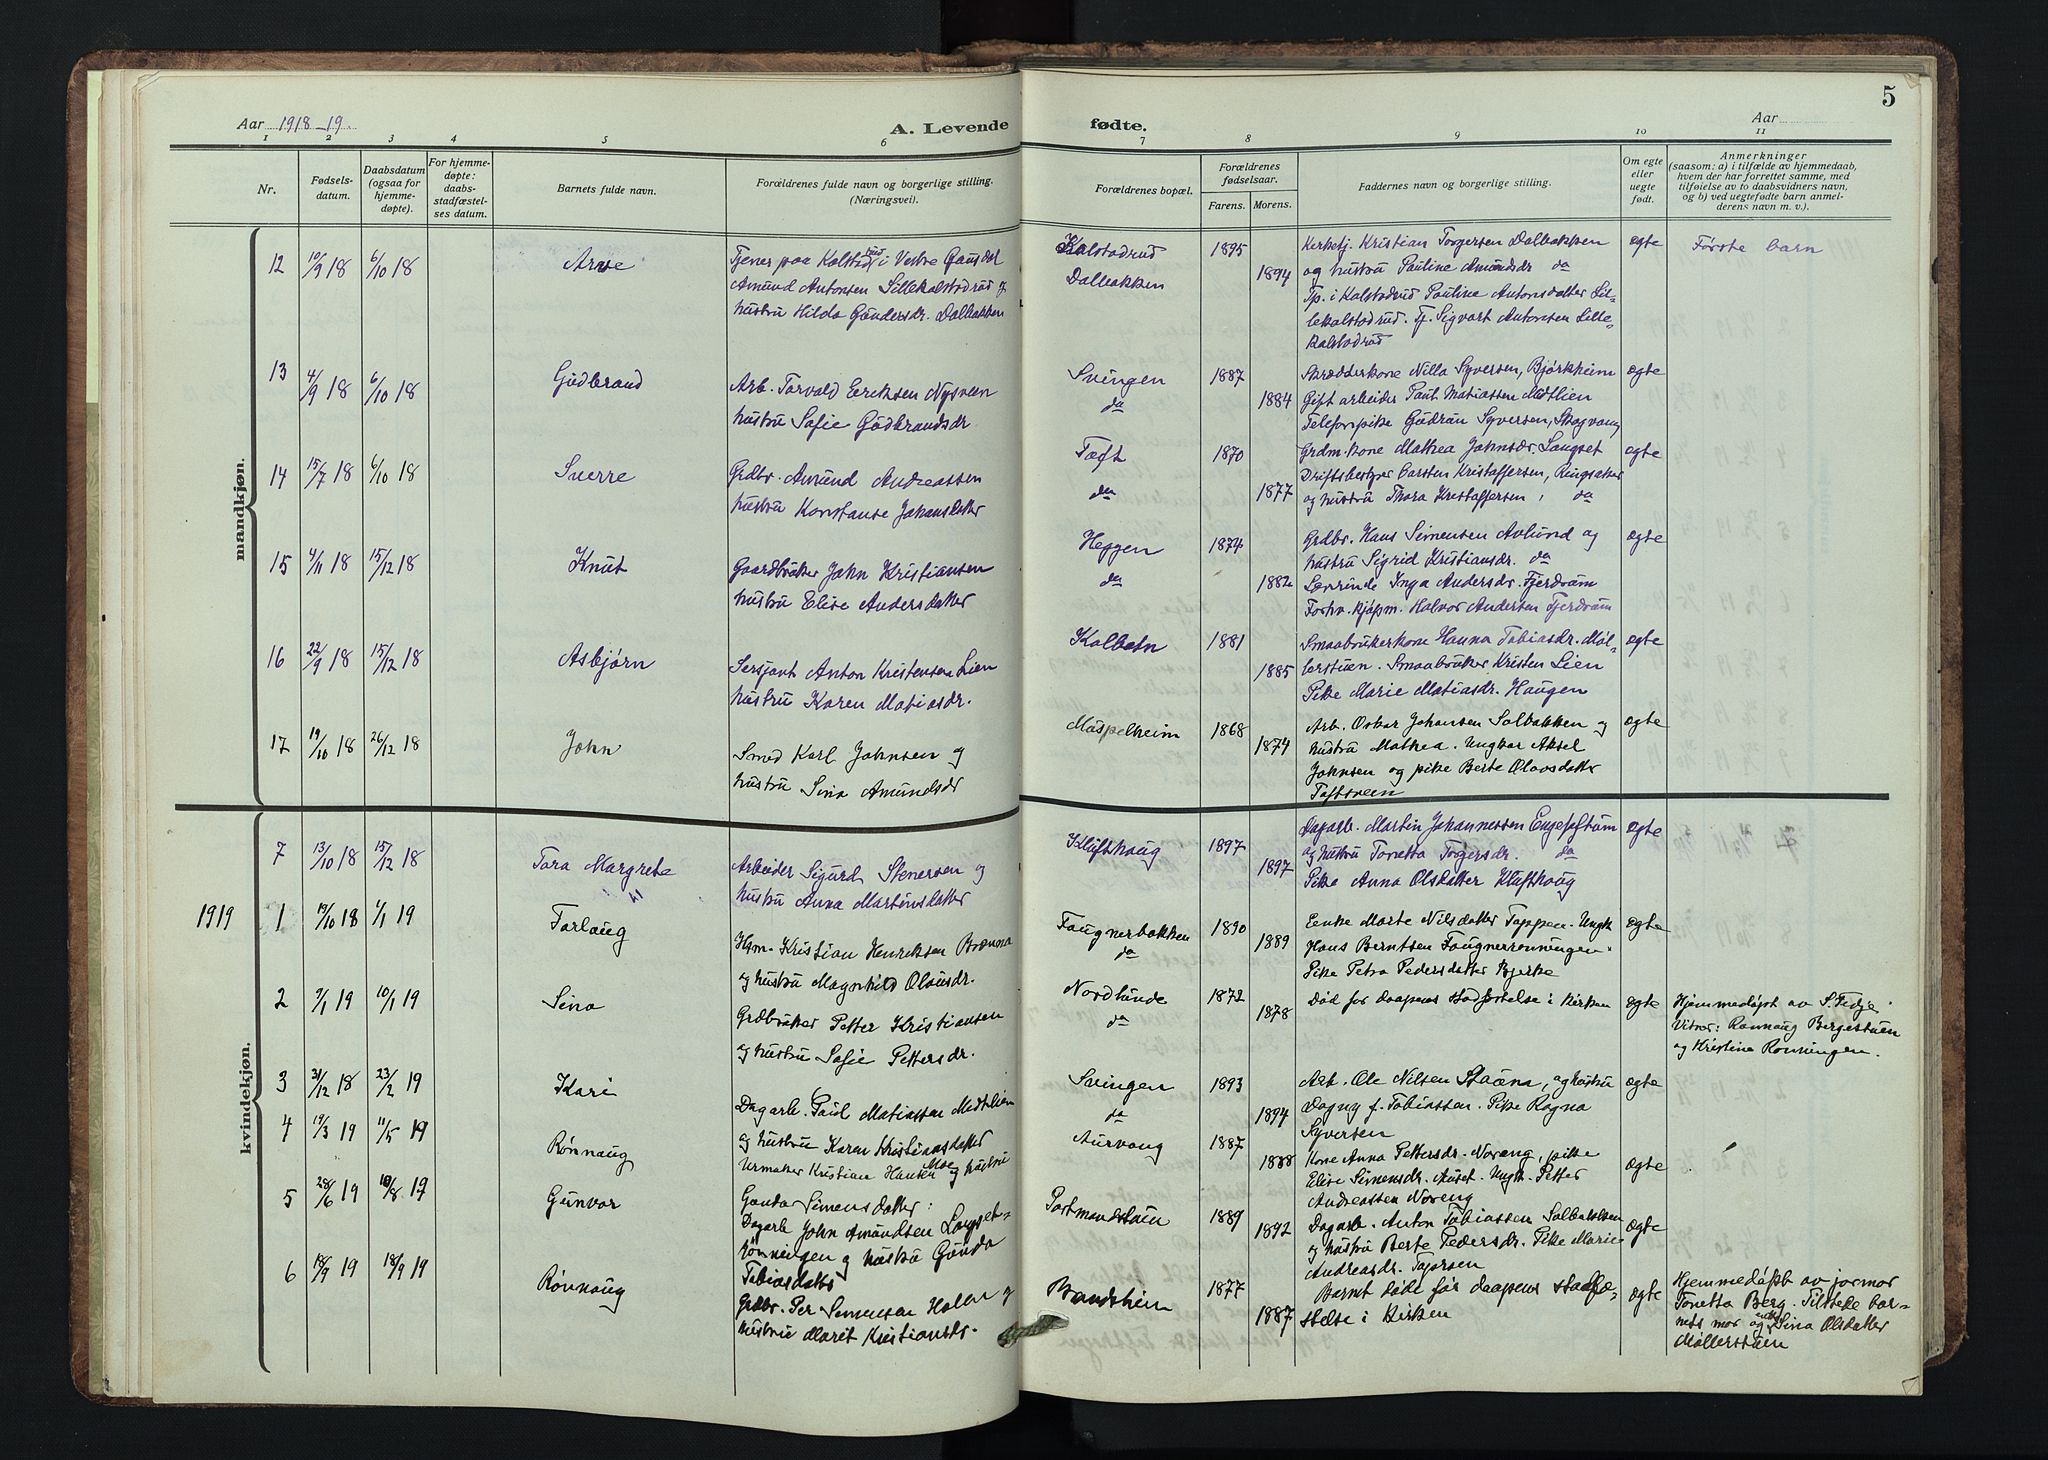 5
Aar 1918-19.
A. Levende
fødte.
Aar
1 2 3 4 5 6 7 8 9 10 11
Nr.
Fødsels-
datum.
Daabsdatum
(ogsaa for
hjemme-
døpte).
For hjemme-
døpte:
daabs-
stadfæstel-
ses datum.
Barnets fulde navn.
Forældrenes fulde navn og borgerlige stilling.
(Næringsvei).
Forældrenes bopæl.
Forældrenes
fødselsaar.
Farens. Morens.
Faddernes navn og borgerlige stilling.
Om egte
eller
uegte
født.
Anmerkninger
(saasom: a) i tilfælde av hjemmedaab,
hvem der har forrettet samme, med
tilføielse av to daabsvidners navn,
og b) ved uegtefødte barn anmel-
derens navn m. v.).
mandkjøn.
12 10/9 18 6/10 18 Arne
Tjener paa Kalstadrud i Vestre Gausdal
Amund Antonsen Lillekalstadrud og
hustru Hilda Gundersdr. Dalbakken
Kalstadrud
Dalbakken
1895
1894
Kirketj. Kristian Torgersen Dalbakken
og hustru Pauline Amundsdr do
Tp. i Kalstadrud Pauline Antonsdatter Lil-
lekalstadrud. Tj. Sigvart Antonsen Lille-
kalstadrud
egte
Første barn
13 4/9 18 6/10 18 Gudbrand
Arb. Torvald Eriksen Nysveen
hustru Sofie Gudbrandsdr.
Svingen
do
1887
1884
Skrædderkone Nilla Syversen, Bjørkheim
Gift arbeider Paul Matiassen Midtlien
Telefonpike Gudrun Syversen, Skogvang
egte
14 15/7 18 6/10 18 Sverre
Grdbr. Amund Andreassen
hustru Konstanse Johansdatter
Toft
do
1870
1877
Grdm. kone Mathea Johnsdr. Langset
Driftsbestyrer Carsten Kristoffersen, Ringsaker
og hustru Thora Kristoffersen, do
egte
15 4/11 18 15/12 18 Knut
Gaardbruker John Kristiansen
hustru Elise Andersdatter
Heggen
do
1874
1882
Grdbr. Hans Simensen Avlund og
hustru Sigrid Kristiansdr. do
Lærerinde Inga Andersdr. Fjerdrum
Forhv. kjøpm. Halvor Andersen Fjerdrum
egte
16 22/9 18 15/12 18 Asbjørn
Sersjant Anton Kristensen Lien
hustru Karen Matiasdr.
Kolbotn
1881
1885
Smaabrukerkone Hanna Tobiasdr. Møl-
lerstuen. Smaabruker Kristen Lien
Pike Marie Matiasdr. Haugen
egte
17 19/10 18 26/12 18 John
Smed Karl Johnsen og
hustru Sina Amundsdr
Muspelheim
1868
1874
Arb. Oskar Johansen Solbakken og
hustru Mathea. Ungkar Aksel
Johnsen og pike Berte Olavsdatter
Toftsveen
egte
kvindekjøn.
7 13/10 18 15/12 18 Tora Margrete
Arbeider Sigurd Stenersen og
hustru Anna Martinsdatter
Klufthaug
1897
1897
Dagarb. Martin Johannessen Engesoftum
og hustru Tonetta Torgersdr. do
Pike Anna Olsdatter Klufthaug
egte
1919
1 19/10 18 1/1 19 Torlaug
Hsm. Kristian Henriksen Brænna
og hustru Magnhild Olausdr.
Faugnerbakken
do
1890
1889
Enke Marte Nilsdatter Toppen. Ungk
Hans Berntsen Faugnerrønningen.
Pike Petra Pedersdatter Bjerke
egte
2 9/1 19 10/1 19 Sina
Grdbruker Petter Kristiansen
og hustru Sofie Pettersdr.
Nordlunde
do
1872
1878
Død før daapens stadfestelse i kirken
egte
Hjemmedøpt av S. Fedje.
Vitner: Rønnaug Bergestuen
og Kristine Rønningen.
3 31/12 18 23/2 19 Kari
Dagarb. Paul Matiassen Midtlien
og hustru Karen Kristiansdatter
Svingen
do
1893
1894
Arb. Ole Nilsen Staina, og hustru
Dagny f. Tobiassen. Pike Ragna
Syversen
egte
4 19/3 19 11/5 19 Rønnaug
Urmaker Kristian Hansen Moe og hustru
Ganda Simensdatter:
Aurvang
1887
1888
Kone Anna Pettersdr. Noreng, pike
Elise Simensdr. Auset. Ungk. Petter
Andreassen Noreng
egte
5 28/6 19 10/8 19 Gunvor
Dagarb John Amundsen Langset-
rønningen og hustru Gunda
Tobiasdatter
Portmandstuen
1889
1892
Dagarb. Anton Tobiassen Solbakken
og hustru Berte Pedersdr. Pike Marie
Andreasdr. Tajersen
egte
6 18/9 19 18/9 19 Rønnaug
Grdbr. Per Simensen Holen og
hustru Marit Kristiansdr.
Brandsheim
1877
1887
Barnet døde før daapens stadfæ-
stelse i kirken
egte
Hjemmedøpt av jormor
Tonetta Berg. Tilstede bar-
nets mor og enke Sina Olsdatter
Møllerstuen